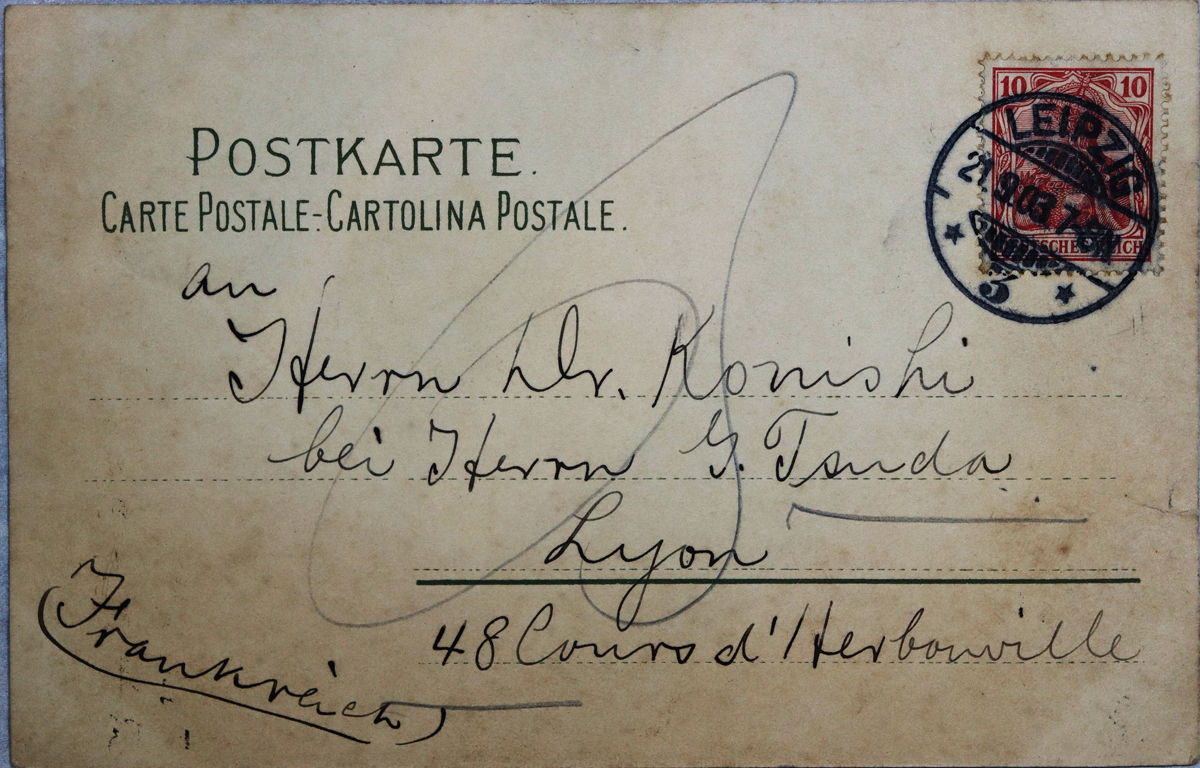 POSTKARTE.
CARTE POSTALE-CARTOLINA POSTALE.
10 10
LEIPZIG
21.9.03.7-8N
3
an
Herrn Dr. Konishi
bei Herrn G. Tsuda
Lyon
48 Cours d'Herbouville
(Frankreich)